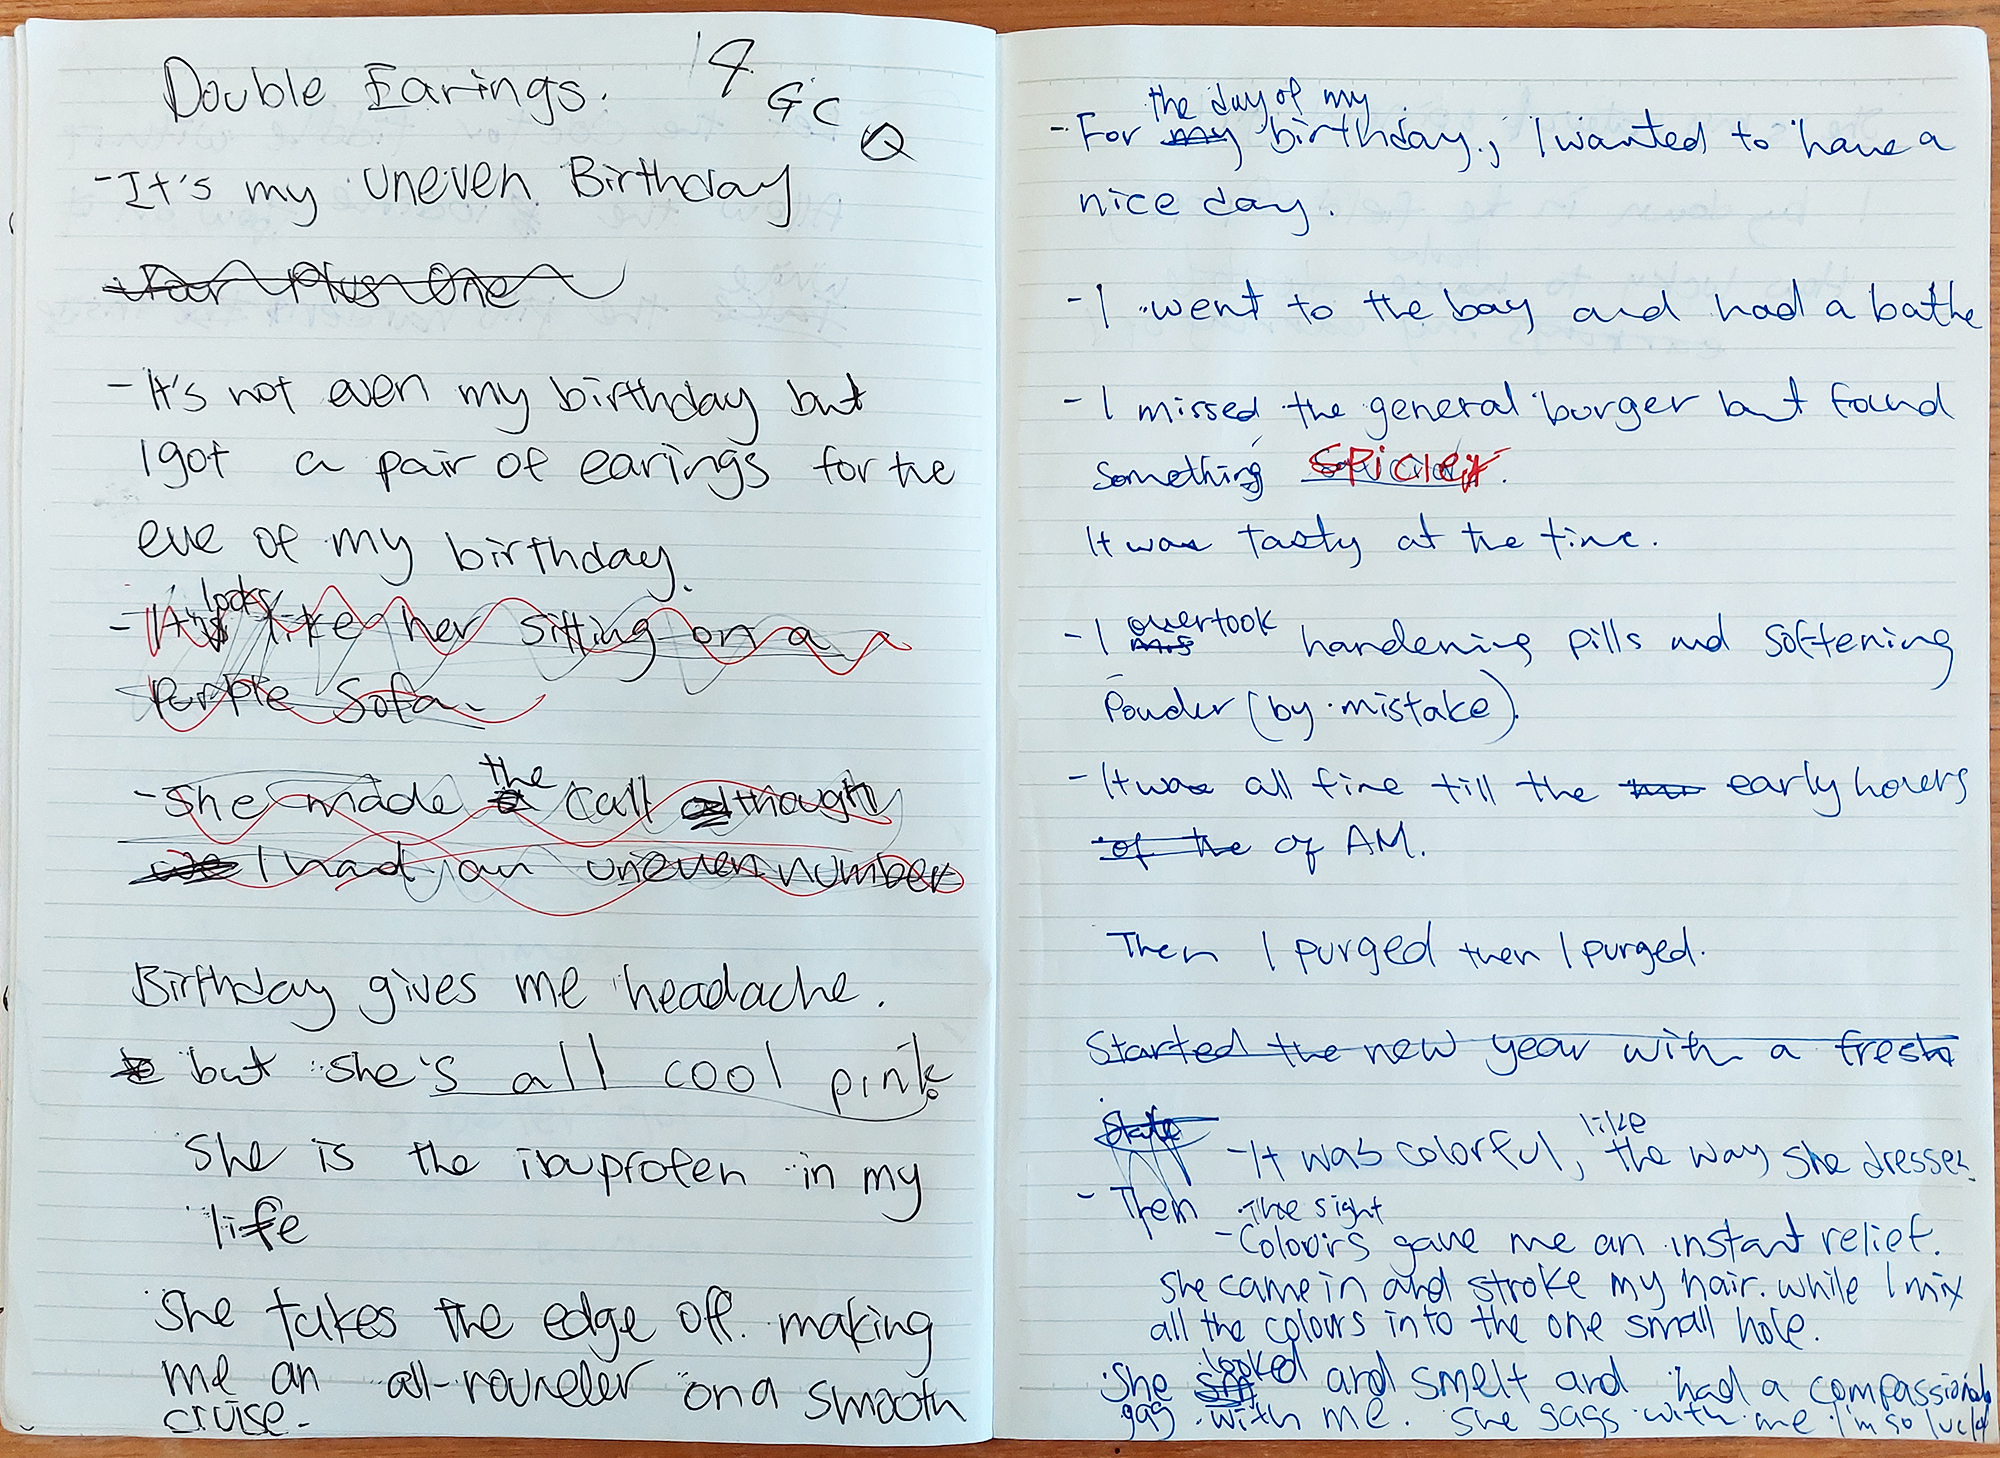 Double Earings. 14
GC
Q
-It's my uneven Birthday
Your Plus One
- It's not even my birthday but
I got a pair of earings for the
eve of my birthday.
looks
- It's like her sitting on a
Purple Sofa.
the
- She made a call although
I had an uneven number
Birthday gives me headache.
but she's all cool pink.
She is the ibuprofen in my
life
She takes the edge off. making
me an all-rounder on a smooth
cruise.
the day of my
- For my birthday, I wanted to have a
nice day.
- I went to the bay and had a bathe
- I missed the general burger but found
something spicier.
It was tasty at the time.
overtook
- I mis hardening pills and softening
Powder (by mistake).
- It was all fine till the early hours
of the of AM.
Then I purged then I purged.
Started the new year with a fresh
like
state - It was colorful, the way she dresses.
- Then The sight
- Colours gave me an instant relief.
She came in and stroke my hair. while I mix
all the colours into the one small hole.
looked
She and smelt and had a compassionate
gag with me. She gags with me I'm so lucky